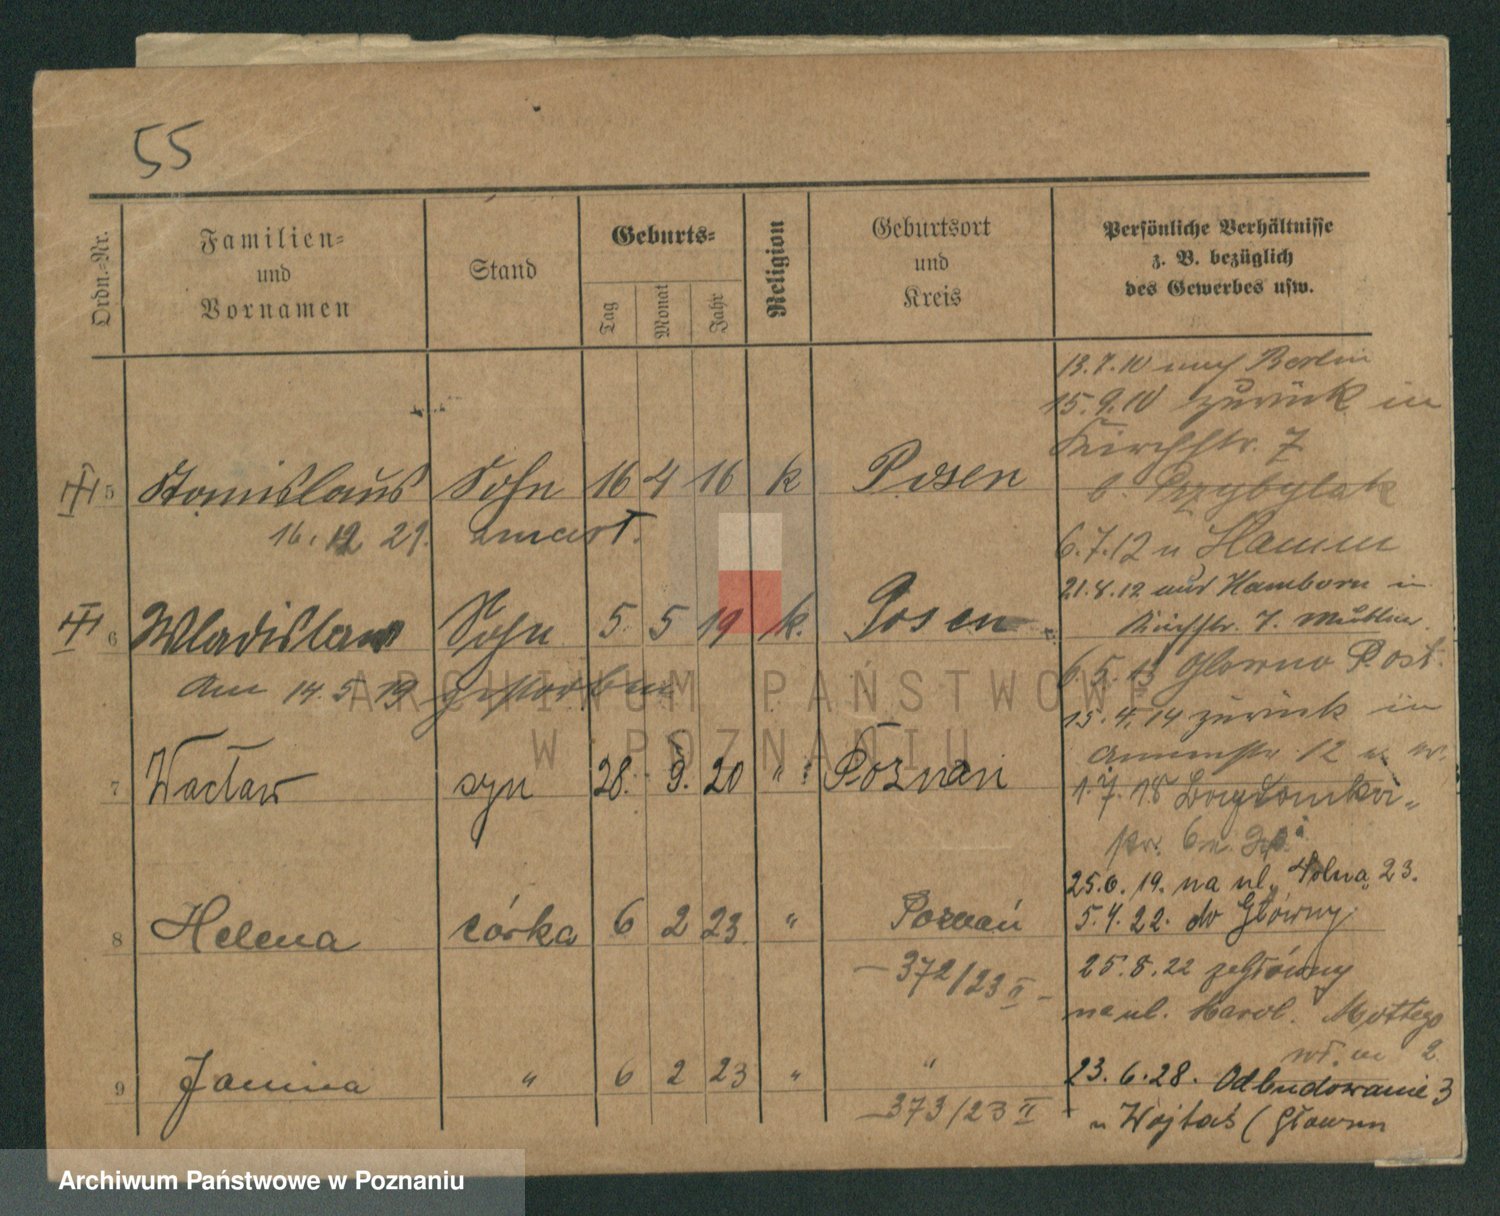 55
Ordn.-Nr.
Familien-
und
Vornamen
Stand
Geburts-
Tag
Monat
Jahr
Religion
Geburtsort
und
Kreis
Persönliche Verhältnisse
z. B. bezüglich
des Gewerbes usw.
5 Stanislaus Sohn 16 4 16 k Posen
16. 12 29. zmarł.
6 Wladislaw Sohn 5. 5 19 k. Posen
am 14.5.19 gestorben
7 Wacław syn 28. 9. 20 " Poznań
8 Helena córka 6 2 23. " Poznań
– 372/23 II –
9 Janina " 6 2 23 " "
– 373/23 II
13.7.10 nach Berlin
15.9.10 zurück in
Kirchstr. 7
b. Przybylak
6.7.12 n Hamm
21.8.12 aus Hamborn in
Kirchstr. 7. Mutter.
6.5.13 Glowno Post.
15.4.14 zurück in
Annenstr 12
1.7.18
str. 6
25.6.19. na ul. Polna 23.
5.4.22. do Główny
25.8.22 z Główny
na ul. Karol. Mottego
2
23.6.28. Odbudowanie 3
u Wojtaś (Główna
ARCHIWUM PAŃSTWOWE
W POZNANIU
Archiwum Państwowe w Poznaniu